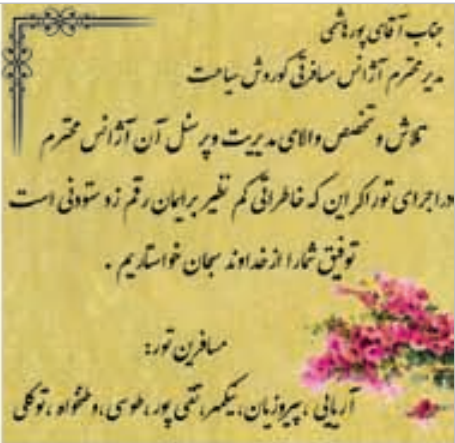 جناب آقای پورهاشمی
مدیر محترم آژانس مسافرتی کوروش سیاحت
تلاش و تخصص والای مدیریت و پرسنل آن آژانس محترم
در اجرای تور اکراین که خاطراتی کم نظیر برایمان رقم زد ستودنی است
توفیق شما را از خداوند سبحان خواستاریم .
مسافرین تور:
آریایی ، پیروزیان، نیکمهر، تقی پور ، طوسی ، وطنخواه ، توکلی